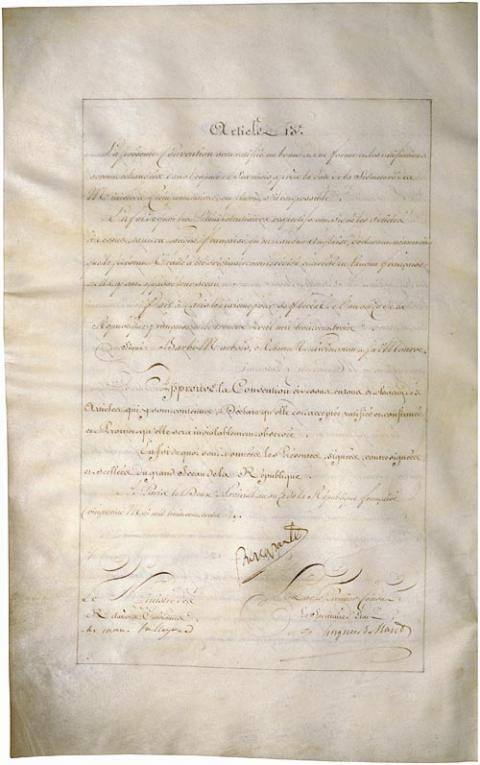 Article 13e.
La présente Convention sera ratifiée en bonne et due forme et les ratifications
seront échangées dans l'espace de Six mois après la date de la Signature des
Ministres Plénipotentiaires ou plutôt s'il est possible.
En foi de quoi les Plénipotentiaires respectifs ont signé les articles
ci-dessus tant en langue française qu'en langue anglaise, déclarant néanmoins
que le présent Traité a été originairement rédigé et arrêté en langue française,
et y ont apposé leur sceau.
Fait à Paris le dixième jour de floréal de l'an onze de la
République française et le trente Avril mil huit cent trois
Signé Barbé Marbois, Robt R Livingston et Jas Monroe.
Approuve la Convention ci-dessus en tous et chacun des
Articles qui y sont contenus; Déclare qu'elle est acceptée, ratifiée et confirmée
et Promet qu'elle sera inviolablement observée.
En foi de quoi sont données les Présentes, signées, contresignées
et scellées du grand Sceau de la République.
à Paris le Deux Prairial an de la République française
mil huit cent trois.
Bonaparte
Le Ministre des Le Premier Consul
Relations Extérieures Le Secrétaire d'Etat
Talleyrand Hugues B. Maret